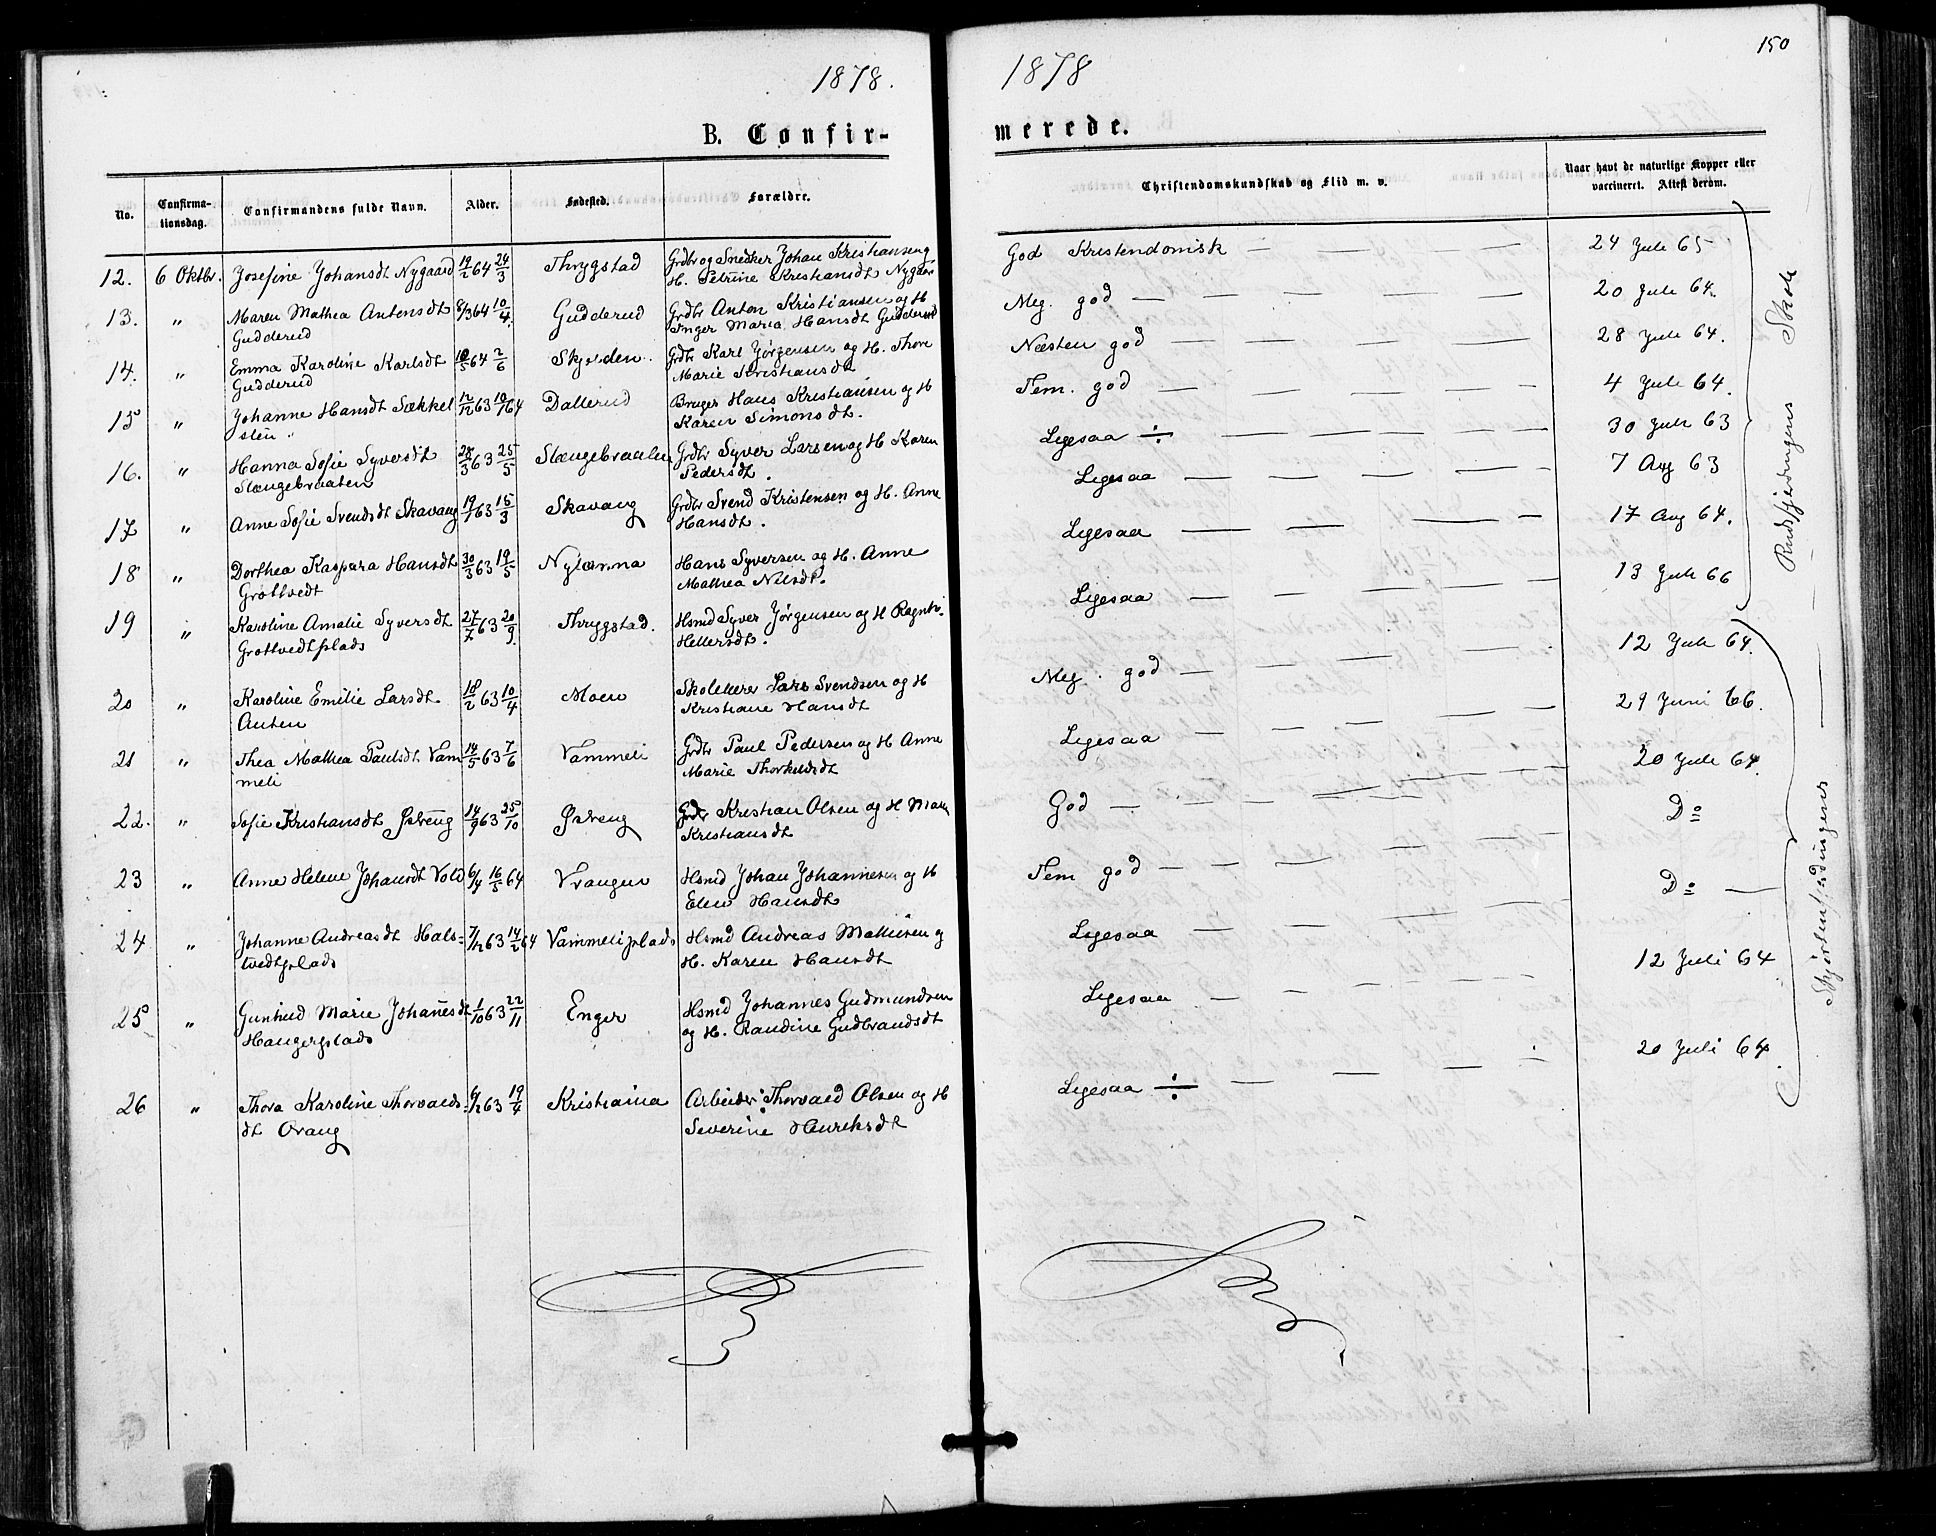 1878.
B. Confir-
No.
Confirma-
tionsdag.
Confirmandens fulde Navn.
Alder.
Fødested.
Forældre.
12. 6 Oktbr. Josefine Johansdt Nygaard 14/2 64 24/3 Thrygstad Grdbr og Snedker Johan Kristiansen og
H. Petrine Kristiansdt Nygaard
13. " Maren Mathea Antonsdt 8/3 64 10/4 Gudderud Grdbr Anton Kristiansen og H
Gudderud Inger Maria Hansdt Gudderud
14. " Emma Karoline Karlsdt 10/5 64 2/6 Skjelden Grdbr Karl Jørgensen og H. Thore
Gudderud Marie Kristiansdt
15 " Johanne Hansdt Sækkel 12/12 63 10/1 64 Dallerud Bruger Hans Kristiansen og H
sten " Karen Simonsdt.
16. " Hanna Sofie Syversdt 28/3 63 25/5 Slængebraaten Grdbr Syver Larsen og H Karen
Slængebraaten Pedersdt.
17 " Anne Sofie Svendsdt Skavang 19/1 63 15/3 Skavang Grdbr Svend Kristensen og H. Anne
Hansdt.
18 " Dorthea Kaspara Hansdt 30/3 63 19/5 Nylænna Hans Syversen og H. Anne
Grøttvedt Mathea Nilsdt.
19 " Karoline Amalie Syversdt 27/7 63 20/9 Thrygstad. Hsmd Syver Jørgensen og H Ragnh.
Grøttvedtplads Hellersdt.
20 " Karoline Emilie Larsdt 18/2 63 10/4 Moen Skolelærer Lars Svendsen og H
Anten Kristiane Hansdt
21 " Thea Mathea Paulsdt Vam 14/5 63 7/6 Vammeli Grdbr Paul Pedersen og H Anne
meli Marie Thorkeldsdt
22. " Sofie Kristiansdt Østeng 14/9 63 25/10 Østeng Grdbr Kristian Olsen og H Maren
Kristiansdt
23 " Anne Helene Johansdt Vold 6/4 16/5 64 Vrangen Hsmd Johan Johannesen og H
Elen Hansdt
24 " Johanne Andreasdt Hals- 7/12 63 14/2 64 Vammeliplads Hsmd Andreas Mathisen og
tvedtplads H. Karen Hansdt
25 " Gunhild Marie Johannesdt 1/10 63 22/11 Enger Hsmd Johannes Gudmundsen
Haugerplads og H. Randine Gudbrandsdt
26 " Thora Karoline Thorvalds- 6/2 63 19/4 Kristiania Arbeider Thorvald Olsen og H
dt Orang Severine Henriksdt
150
1878
merede.
Christendomskundskab og Flid m. v.
Naar havt de naturlige Kopper eller
vaccineret. Attest derom.
God Kristendomsk — — — — 24 Juli 65
Meg. god — — — — 20 Juli 64
Næsten god — — — — 28 Juli 64.
Tem. god — — — — 4 Juli 64.
Ligesaa ÷ — — — — 30 Juli 63
Ligesaa — — — — 7 Aug 63
Ligesaa — — — — 17 Aug 64.
Ligesaa — — — — 13 Juli 66
Meg. god — — — — 12 Juli 64.
Ligesaa — — — — 29 Juni 66.
God — — — — 20 Juli 64.
Tem god — — — — Do
Ligesaa — — — — Do —
Ligesaa — — — — 12 Juli 64
Ligesaa ÷ — — — — 20 Juli 64.
Rudsfjerdingens Skole
Skjørtenfjerdingens —